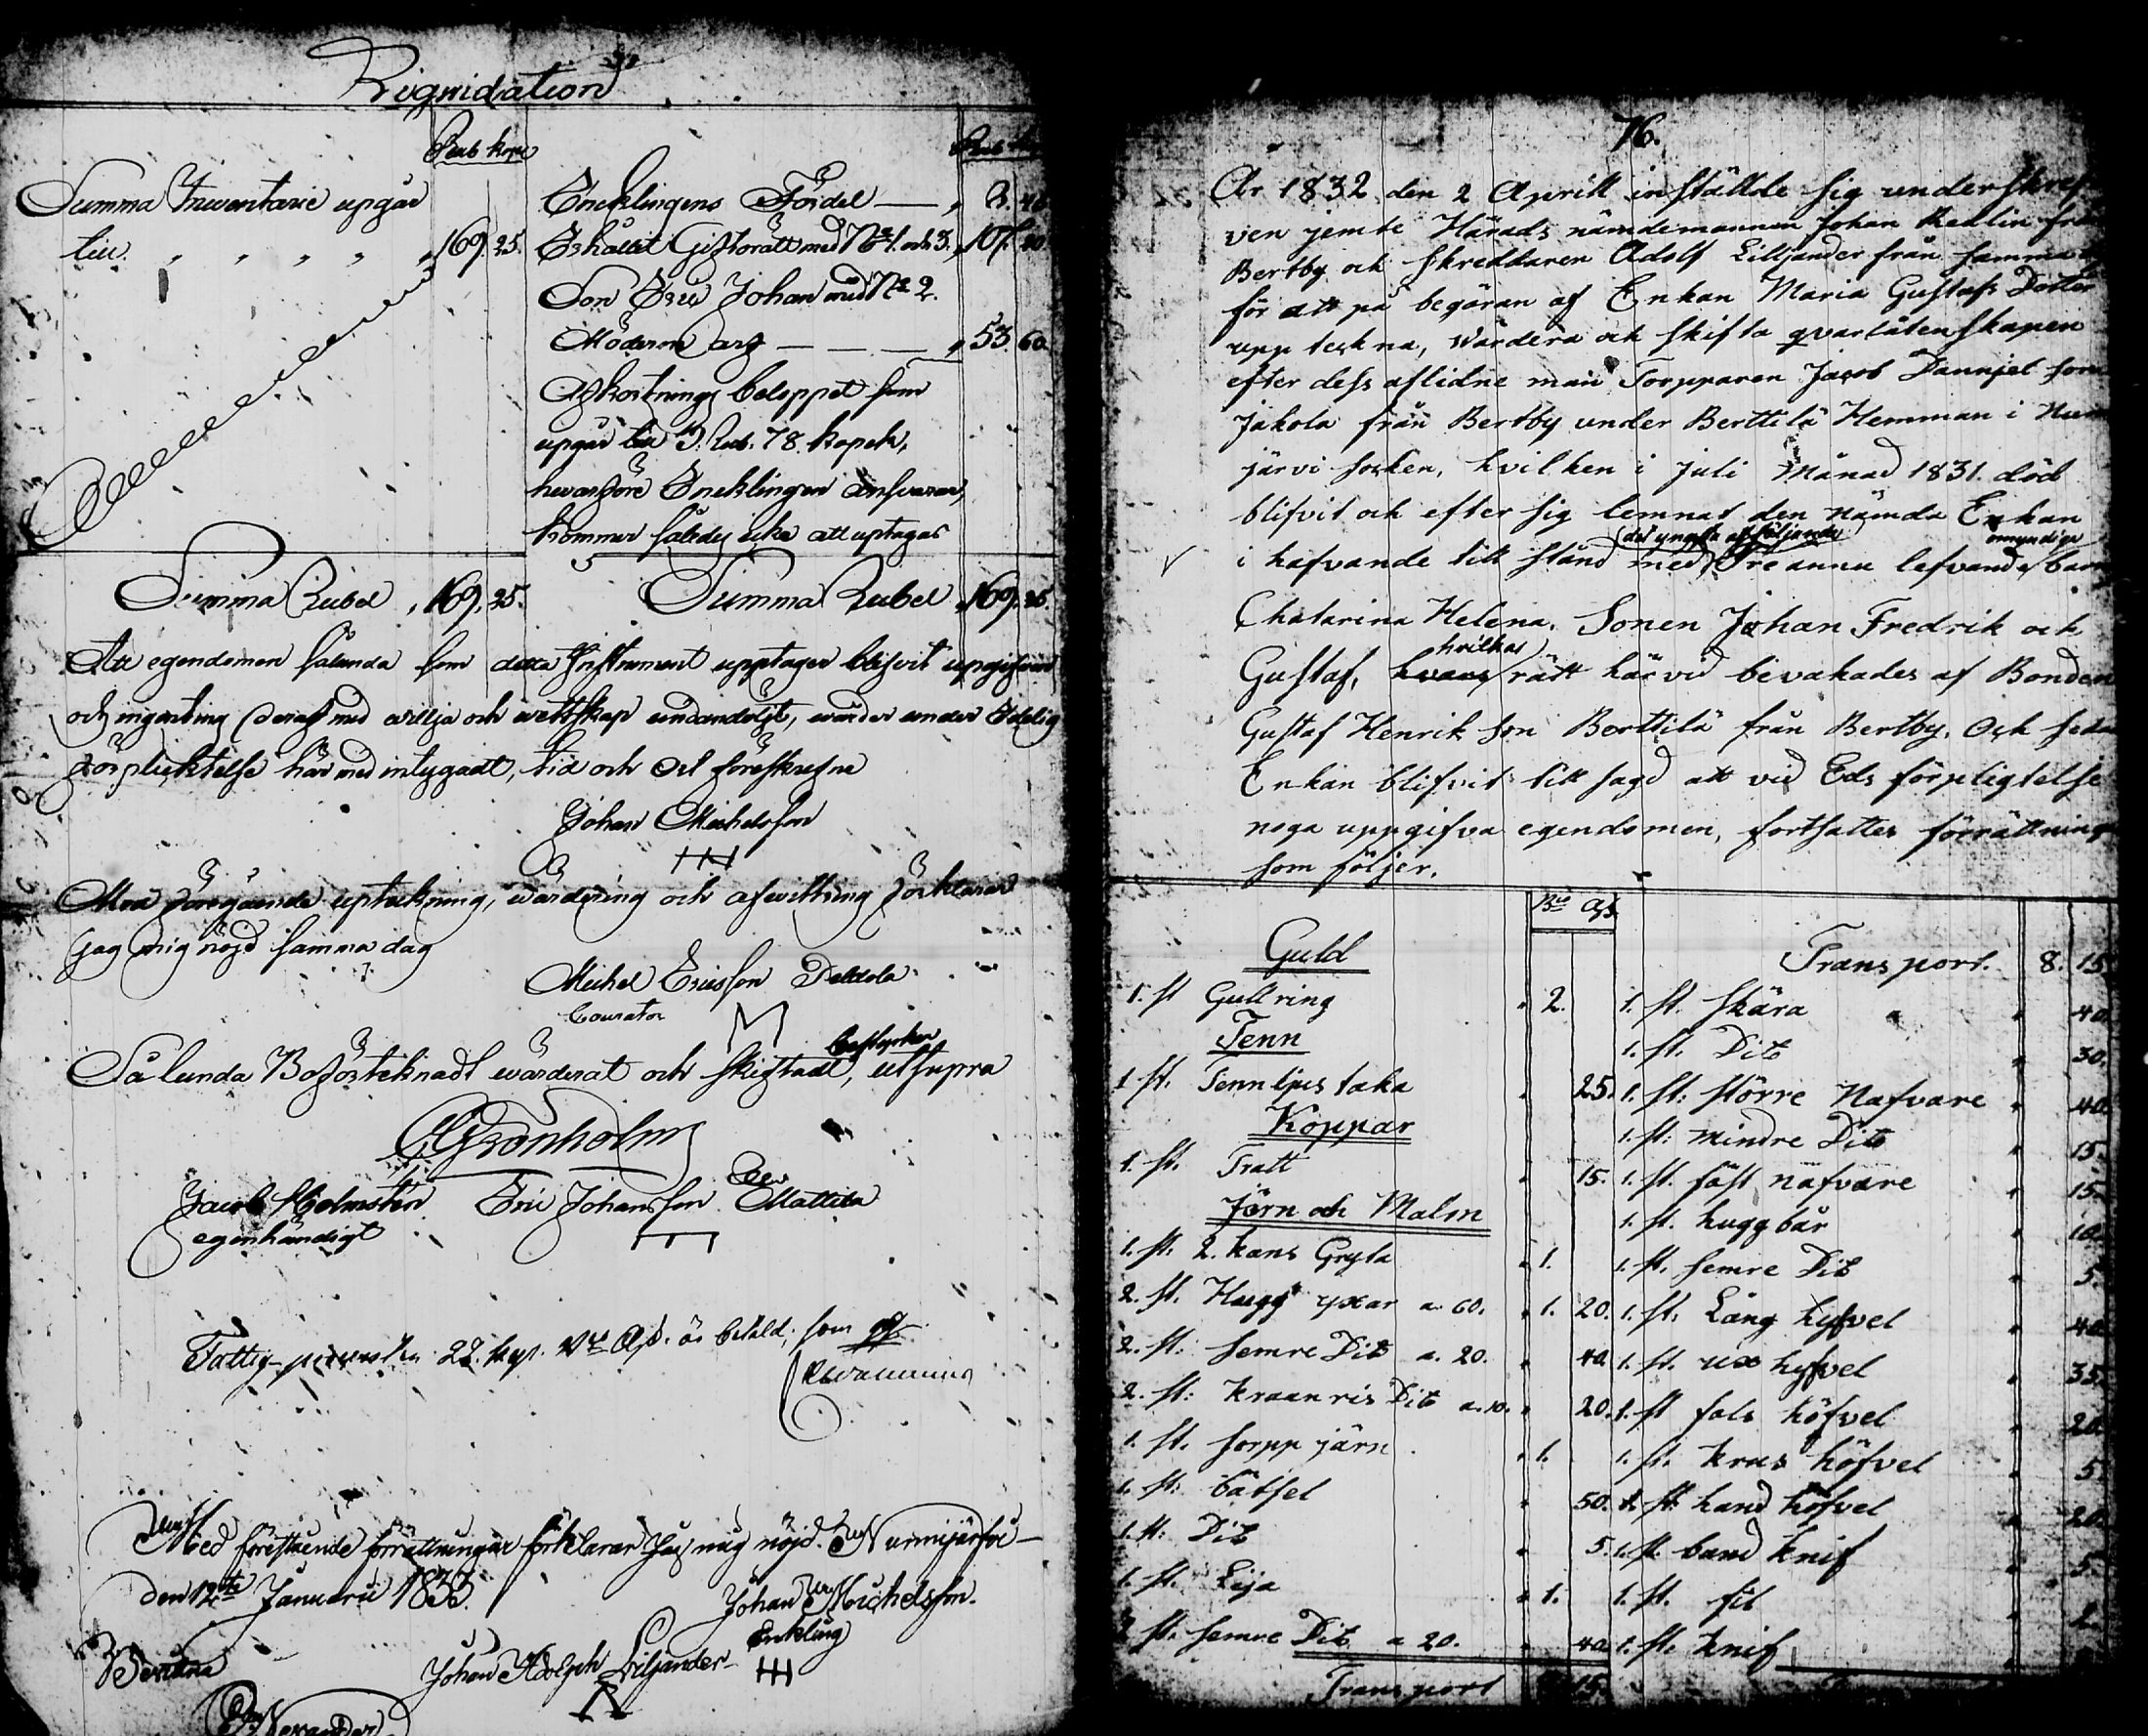 Liqvidation
Rub kop
Summa Inventarie upgår
till " " " " " 169. 25.
Summa Rubel " 169. 25.
Rub
Eneklingens Fördel — " 8. 45
Erhållit Giftorätt med No 1. och 3. " 107. 20
Son Eric Johan med No 2.
Möderne arf — — — " 53. 60.
Afkortnings beloppet som
upgår till 3. Rub. 78. kopek,
hvarföre Eneklingen ansvarar,
kommer således icke att uptagas
Summa Rubel " 169. 25.
Att egendomen sålunda som detta Instrument upptager blifvit upgifven
och ingenting deraf med villja och vettskap undandöljt, warder under Edelig
förpliktelse härmed intygadt, tid och Ort föreskrefne
Johan Michelsson
Med föregående upteckning, wärdering och afwittring förklarar
jag mig nöjd samma dag
Michel Ericsson Peldola
Courator
bestyrker
Sålunda Boförteknadt wärderat och skiftadt, utsupra
Grönholm
Jacob Hjelmsten Eric Johansson Mattila
egenhändigt
Fattig procenten 22. kop. Bco Ass. är betald; som qv.
Med förestående förrättningar förklarar Jag mig nöjd. Nurmijärfvi
den 12te Januarii 1833.
Johan Michelsson
Enkling
Bevittna
Johan Adolph Liljander
76.
År 1832 den 2 Aprill inställde sig underskref
ven jemte Härads nämdemannen Johan Redlin från
Bertby och Skreddaren Adolf Lilljander från samma by
för att på begäran af Enkan Maria Gustafs Dotter
upp teckna, Wärdera och skifta qvarlåtenskapen
efter dess aflidne man Torpparen Jacob Dannjel son
Jakola från Bertby under Berttilä Hemman i Nur
järvi socken, hvilken i juli Månad 1831. död
blifvit och efter sig lemnat den nämda Enkan
i hafvande till stånd med Tre annu lefvande omyndige barn
Chatarina Helena, Sonen Johan Fredrik och
hvilkas
Gustaf, hvars rätt här vid bevakades af Bonden
Gustaf Henrik son Berttilä från Bertby. Och sedan
Enkan blifvit till sagd att vid Eds förpligtelse
noga uppgifva egendomen, fortsattes förrättningen
som följer.
Bco Ass.
Guld
1. st Gull ring " 2.
Tenn
1 st. Tenn ljus taka " 25.
Koppar
1. st. Tratt " 15.
Järn och Malm
1. st. 2. kans Gryta " 1.
2. st. Hugg yxar a. 60. " 1. 20.
2. st: semre Dito a. 20. " 40.
2. st: kraanris Dito a. 10. " 20.
1. st. sorpp järn " 1.
1. st: bätsel " 50.
1. st: Dito " 5.
1. st. Lija " 1.
2 st. semre Dito a 20. " 40.
Transport 8. 15.
Transport. 8. 15
1. st. Skära " 40.
1. st. Dito " 30.
1. st: större Nafvare " 40.
1. st: mindre Dito " 15.
1. st. fäst nafvare " 15.
1. st. hugg bår " 10.
1. st. semre Dito " 5.
1. st. Lång hyfvel " 40.
1. st. ux hyfvel " 35.
1. st fals höfvel " 20.
1. st. krus höfvel " 5.
1. st. hand höfvel " 20.
1. st. band knif " 5.
1. st. fil " 2.
1. st. knif